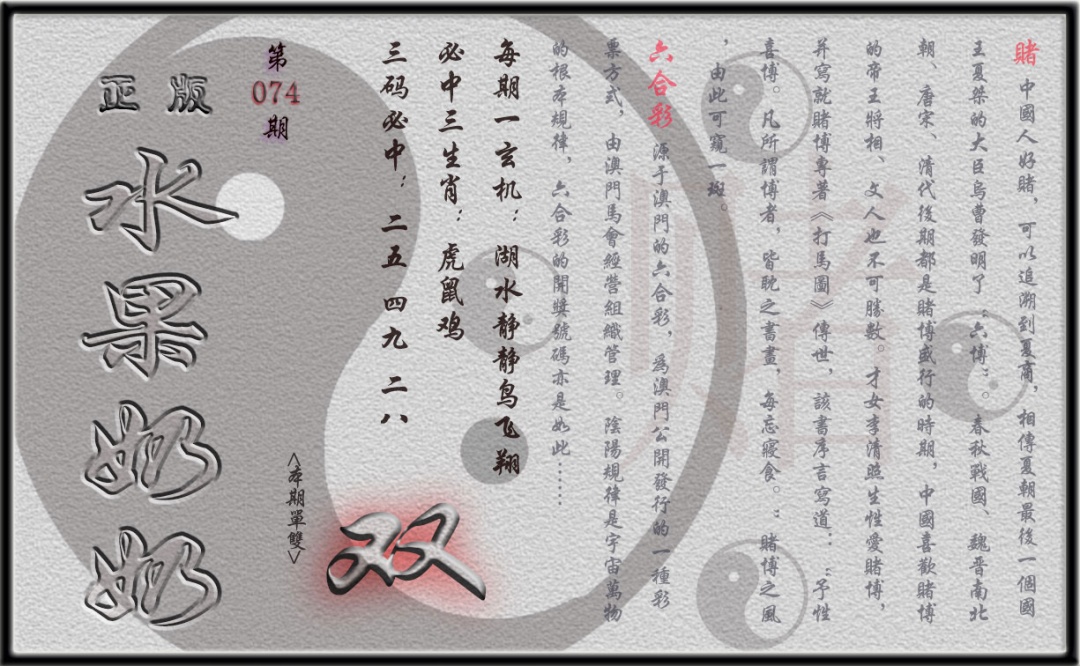 賭 中國人好賭，可以追溯到夏商，相傳夏朝最後一個國
王夏桀的大臣烏曹發明了“六博”。春秋戰國、魏晋南北
朝、唐宋、清代後期都是賭博盛行的時期，中國喜歡賭博
的帝王將相、文人也不可勝數。才女李清照生性愛賭博，
并寫就賭博專著《打馬圖》傳世，該書序言寫道：“予性
喜博。凡所謂博者，皆耽之書畫，每忘寢食。”賭博之風
，由此可窺一斑。
六合彩 源于澳門的六合彩，為澳門公開發行的一種彩
票方式，由澳門馬會經營組織管理。陰陽規律是宇宙萬物
的根本規律，六合彩的開獎號碼亦是如此……
每期一玄机：湖水静静鸟飞翔
必中三生肖：虎鼠鸡
三码必中：二五 四九 二八
双
<本期單雙>
第
074
期
正版
水果奶奶
赌